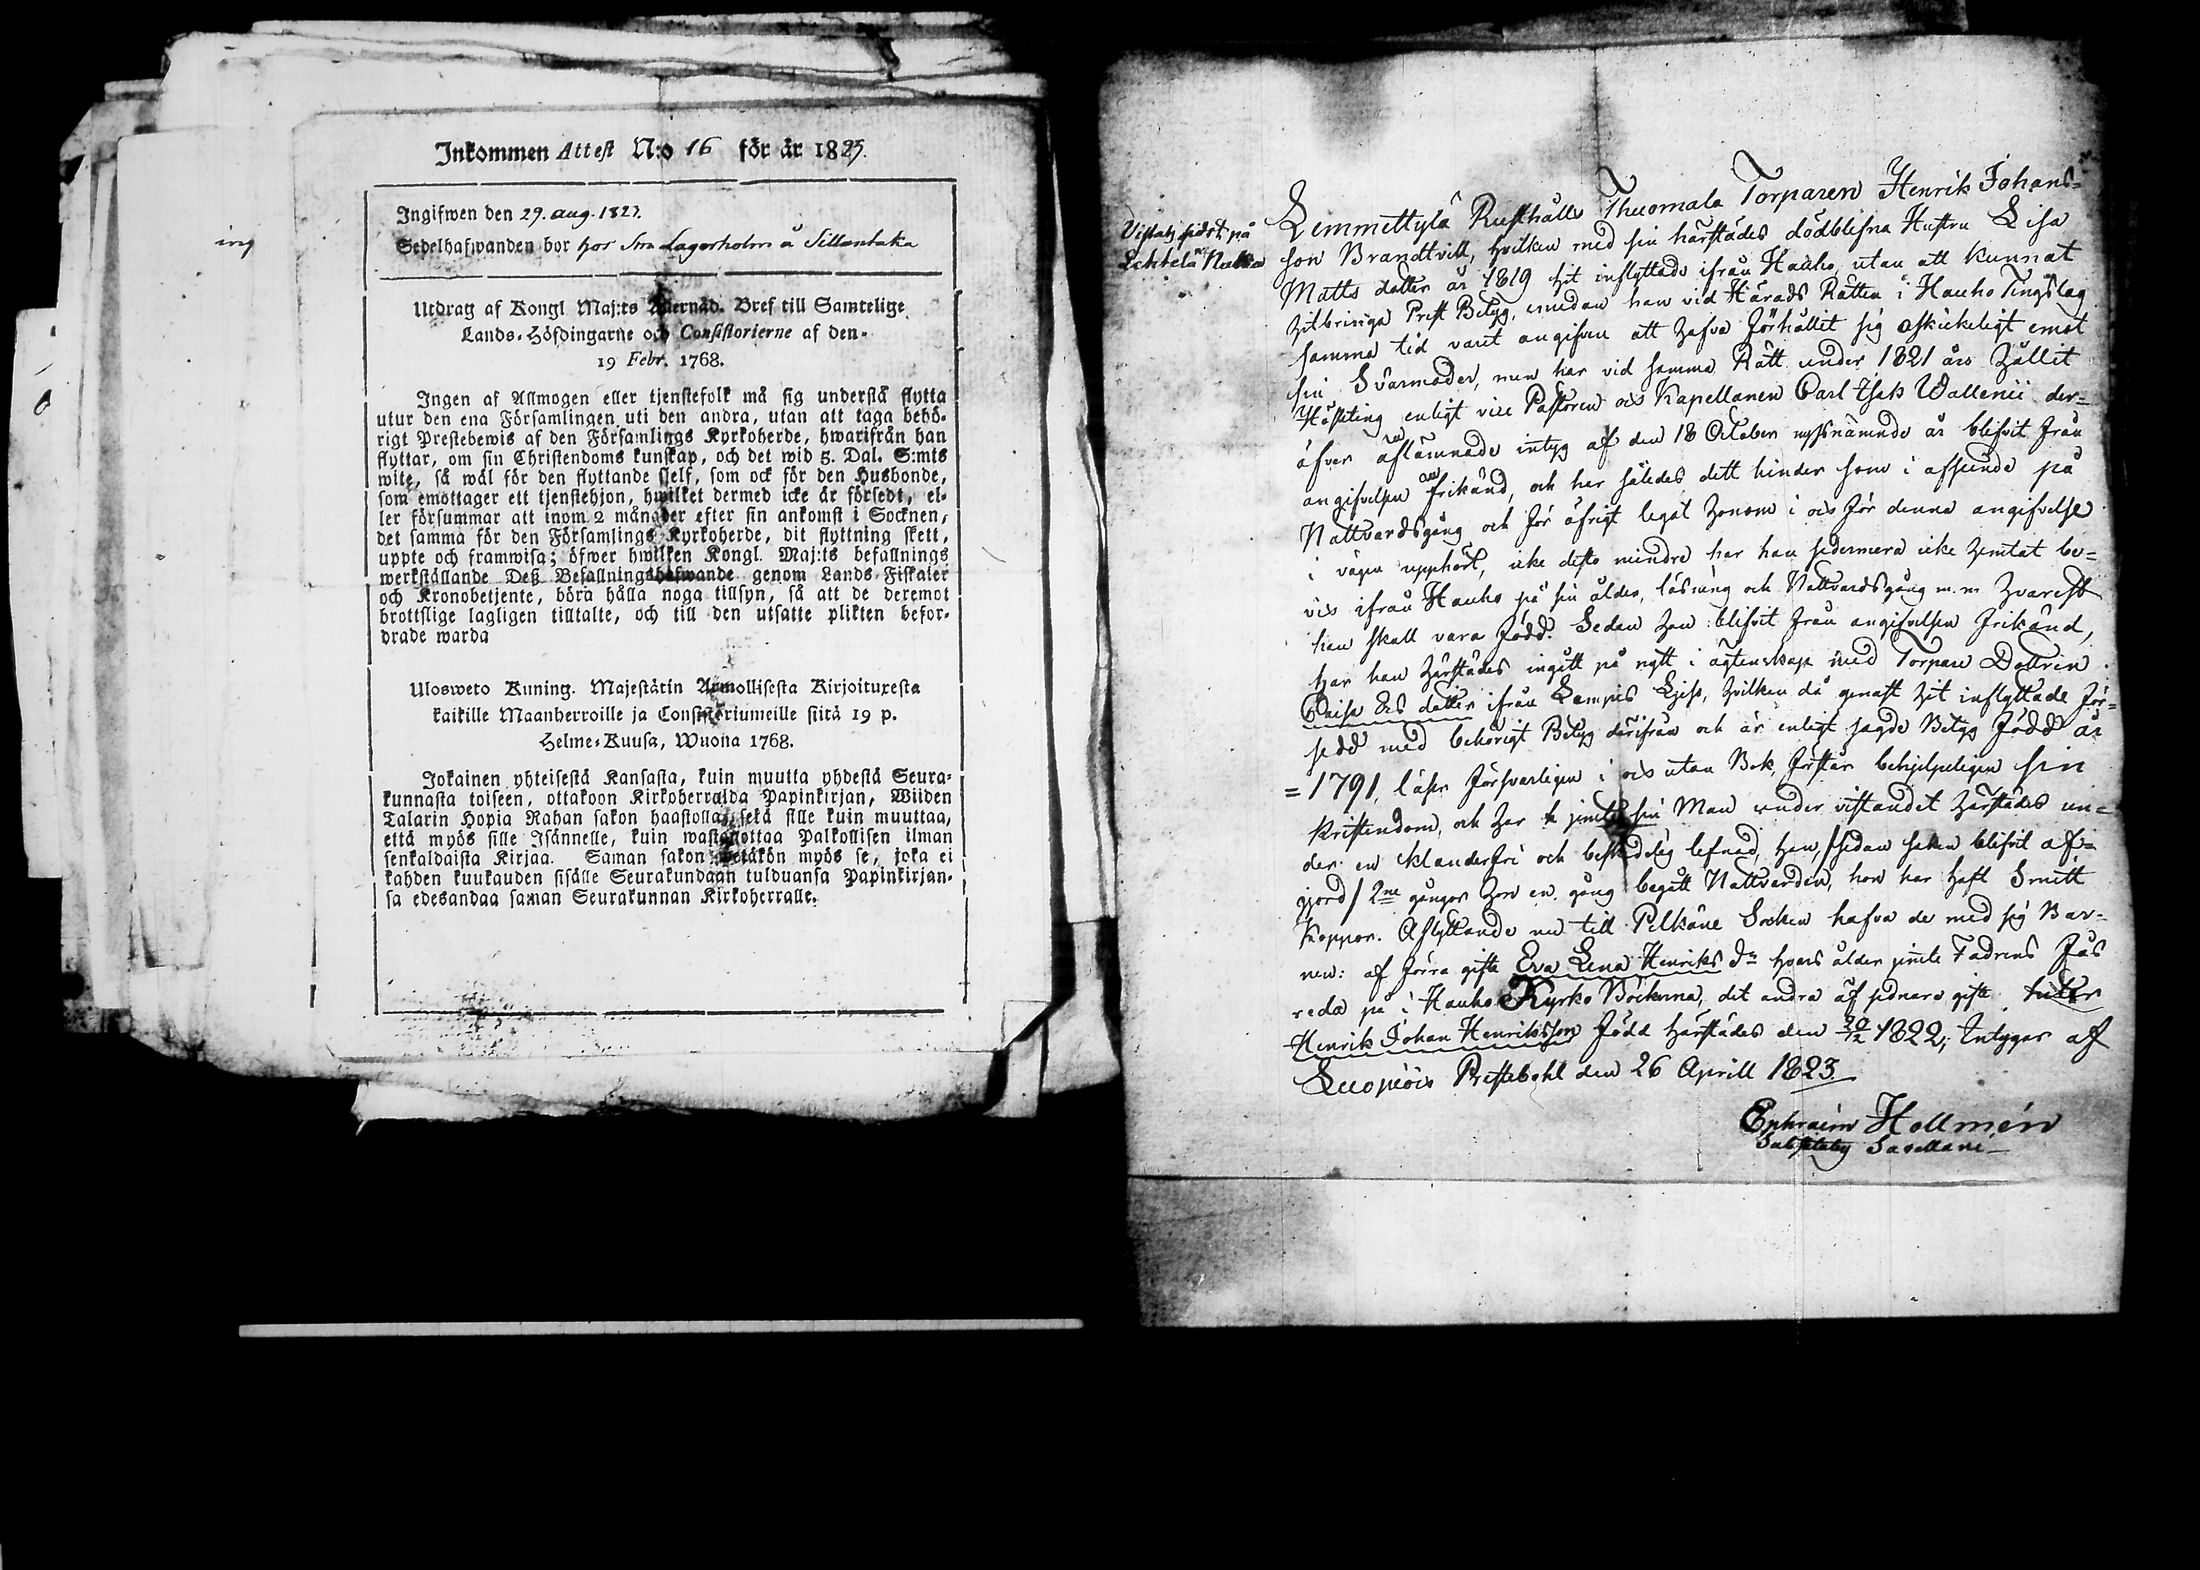 Inkommen Attest N:o 16 för år 1825.
Ingifwen den 29. aug. 1823.
Sedelhafwanden bor hos Lagerholm å Sillantaka
ing
Utdrag af Kongl Maj:ts Allernåd. Bref till Samtelige
Lands-Höfdingarne och Consistorierne af den
19 Febr. 1768.
Ingen af Allmogen eller tjenstefolk må sig understå flytta
utur den ena Församlingen uti den andra, utan att taga behö-
rigt Prestebewis af den Församlings Kyrkoherde, hwarifrån han
flyttar, om sin Christendoms kunskap, och det wid 5. Dal. S:mts
wite, så wäl för den flyttande sjelf, som ock för den Husbonde,
som emottager ett tjenstehjon, hwilket dermed icke är försedt, el-
ler försummar att inom 2 månader efter sin ankomst i Socknen,
det samma för den Församlings Kyrkoherde, dit flyttning skett,
uppte och framwisa; öfwer hwilken Kongl. Maj:ts befallnings
werkställande Deß Befallningshafwande genom Lands-Fiskaler
och Kronobetjente, böra hålla noga tillsyn, så att de deremot
brottslige lagligen tilltalte, och till den utsatte plikten befor-
drade warda
Ulosweto Kuning. Majestätin Armollisesta Kirjoituxesta
kaikille Maanherroille ja Consistoriumeille siitä 19 p.
Helme-Kuusa, Wuona 1768.
Jokainen yhteisestä Kansasta, kuin muutta yhdestä Seura-
kunnasta toiseen, ottakoon Kirkoherralda Papinkirjan, Wiiden
Talarin Hopia Rahan sakon haastolla, sekä sille kuin muuttaa,
että myös sille Isännelle, kuin wastanottaa Palkollisen ilman
senkaldaista Kirjaa. Saman sakon wetäkön myös se, joka ei
kahden kuukauden sisälle Seurakundaan tulduansa Papinkirjan-
sa edesandaa saman Seurakunnan Kirkoherralle.
Vistats sidst på
Lehtelä
Lemmettylä Rusthålls Thuomala Torparen Henrik Johans-
son Brandtvill, hvilken med sin härstädes dödblefna Hustru Lisa
Matts dotter år 1819 hit inflyttade ifrån Hauho, utan att kunnat
hitbringa Prest Betyg, emedan han vid Härads Rätten i Hauho Tingslag
samma tid varit angifven att hafva förhållit sig oskickeligt emot
sin Svärmoder, men har vid samma Rätt under 1821 års hållit
Hösteting enligt vice Pastoren och Kapellanen Carl Isak Wallenii der-
öfver aflämnade intyg af den 18 October nyssnämnde år blifvit från
angifvelsen frikänd, och har således dett hinder som i afseende på
Nattvardsgång och för öfrigt legat honom i och för denna angifvelse
i vägen upphört, icke desto mindre har han sedermera icke hemtat be-
vis ifrån Hauho på sin ålder, läsning och Nattvardsgång m.m hvarest
han skall vara född. Sedan han blifvit från angifvelsen frikänd,
har han härstädes ingått på nytt i ägtenskap med Torpare Dottren
Caisa Ers dotter ifrån Lampis Ejess, hvilken då genast hit inflyttade för-
sedd med behörigt Betyg därifrån och är enligt sagde Betyg född år
=1791, läser försvarligen i och utan Bok, förstår behjelpeligen sin
Kristendom, och har jemte sin Man under vistandet härstädes un-
der en klanderfri och beskedelig lefnad, han, /sedan saken blifvit af-
gjord/ 2ne gånger hon en gång begått Nattvarden, hon har haft Smitt
Koppor. Aflyttande nu till Pelkäne Socken hafva de med sig Bar-
nen: af förra gifte Eva Lena Henriks dr hvars ålder jemte Fadrens fås
reda på i Hauho Kyrko Böckerna, det andra af sednare gifte
Henrik Johan Henriksson född härstädes den 20/12 1822; Intygar af
Luopiois Prestebohl den 26 Aprill 1823.
Ephraim Hollmén
Substitutus Sacellani